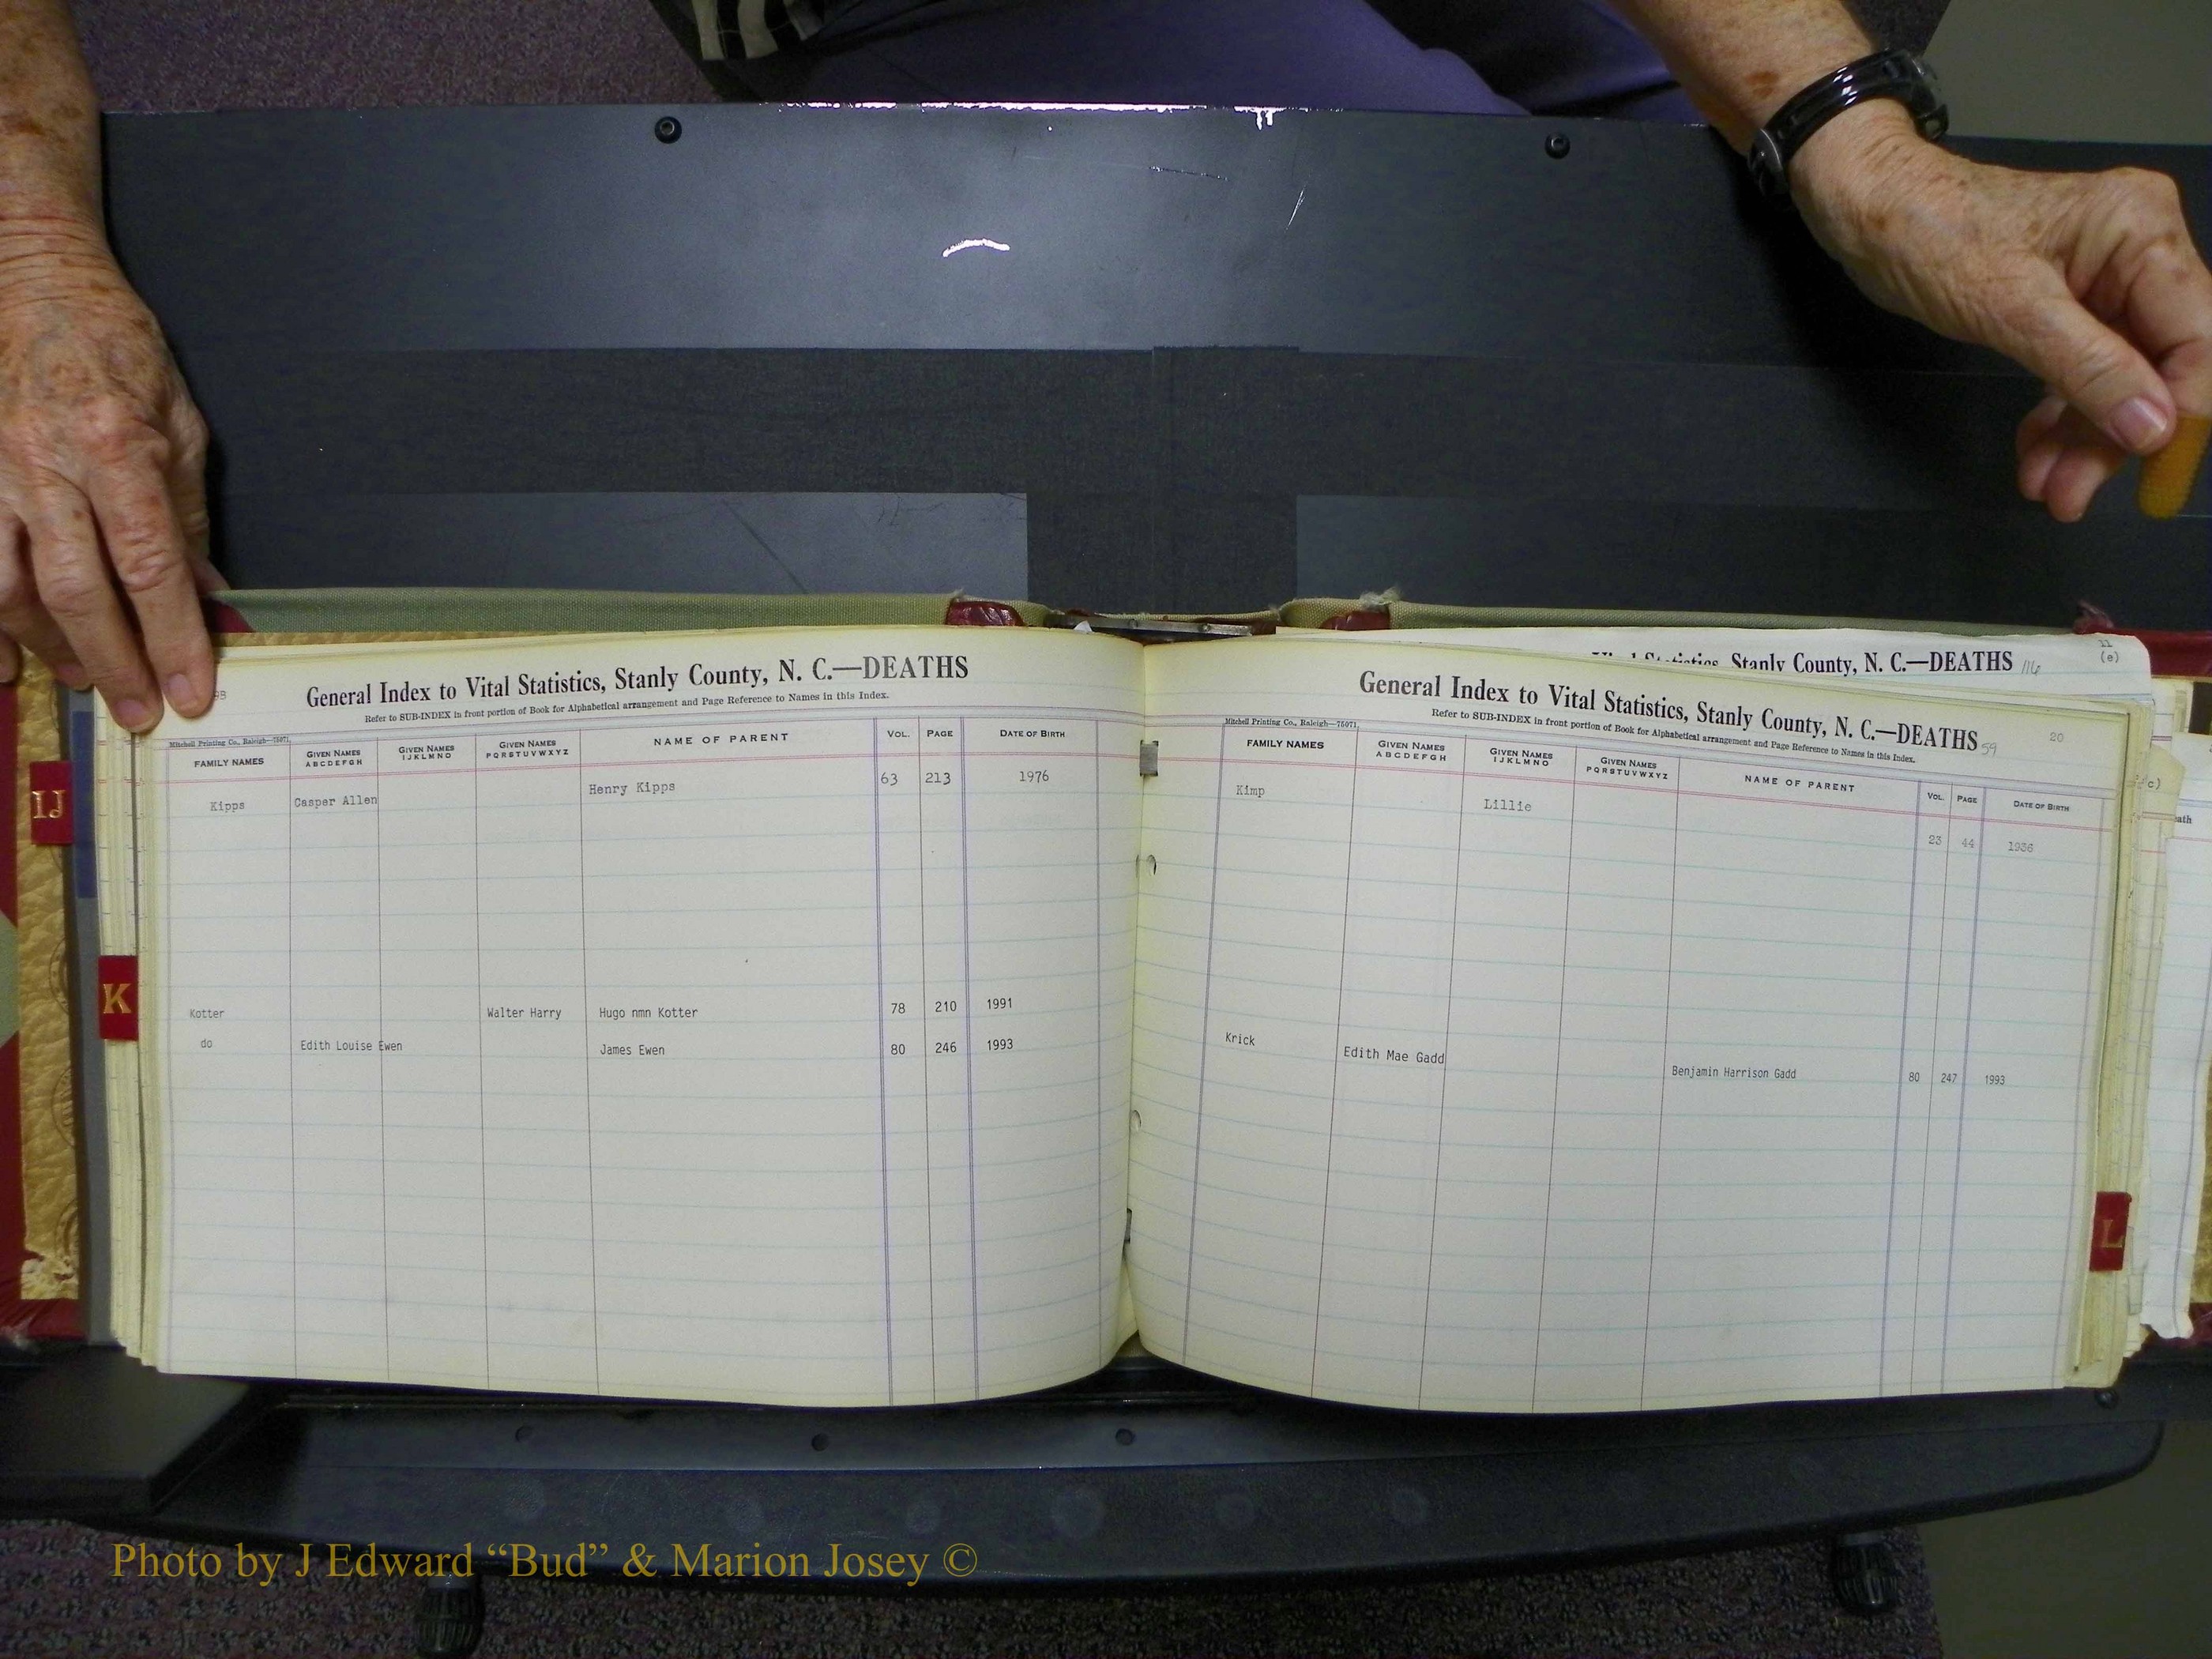 General Index to Vital Statistics, Stanly County, N. C.—DEATHS
Refer to SUB-INDEX in front portion of Book for Alphabetical arrangement and Page Reference to Names in this Index.
Mitchell Printing Co., Raleigh—75071.
FAMILY NAMES GIVEN NAMES ABCDEFGH GIVEN NAMES IJKLMNO GIVEN NAMES PQRSTUVWXYZ NAME OF PARENT VOL. PAGE DATE OF BIRTH
Kipps Casper Allen Henry Kipps 63 213 1976
Kotter Walter Harry Hugo nmn Kotter 78 210 1991
do Edith Louise Ewen James Ewen 80 246 1993
IJ
K
Stanly County, N. C.—DEATHS 116
11
(e)
General Index to Vital Statistics, Stanly County, N. C.—DEATHS 59
20
Refer to SUB-INDEX in front portion of Book for Alphabetical arrangement and Page Reference to Names in this Index.
Mitchell Printing Co., Raleigh—75071.
FAMILY NAMES GIVEN NAMES ABCDEFGH GIVEN NAMES IJKLMNO GIVEN NAMES PQRSTUVWXYZ NAME OF PARENT VOL. PAGE DATE OF BIRTH
Kimp Lillie 23 44 1936
Krick Edith Mae Gadd Benjamin Harrison Gadd 80 247 1993
L
Photo by J Edward “Bud” & Marion Josey ©